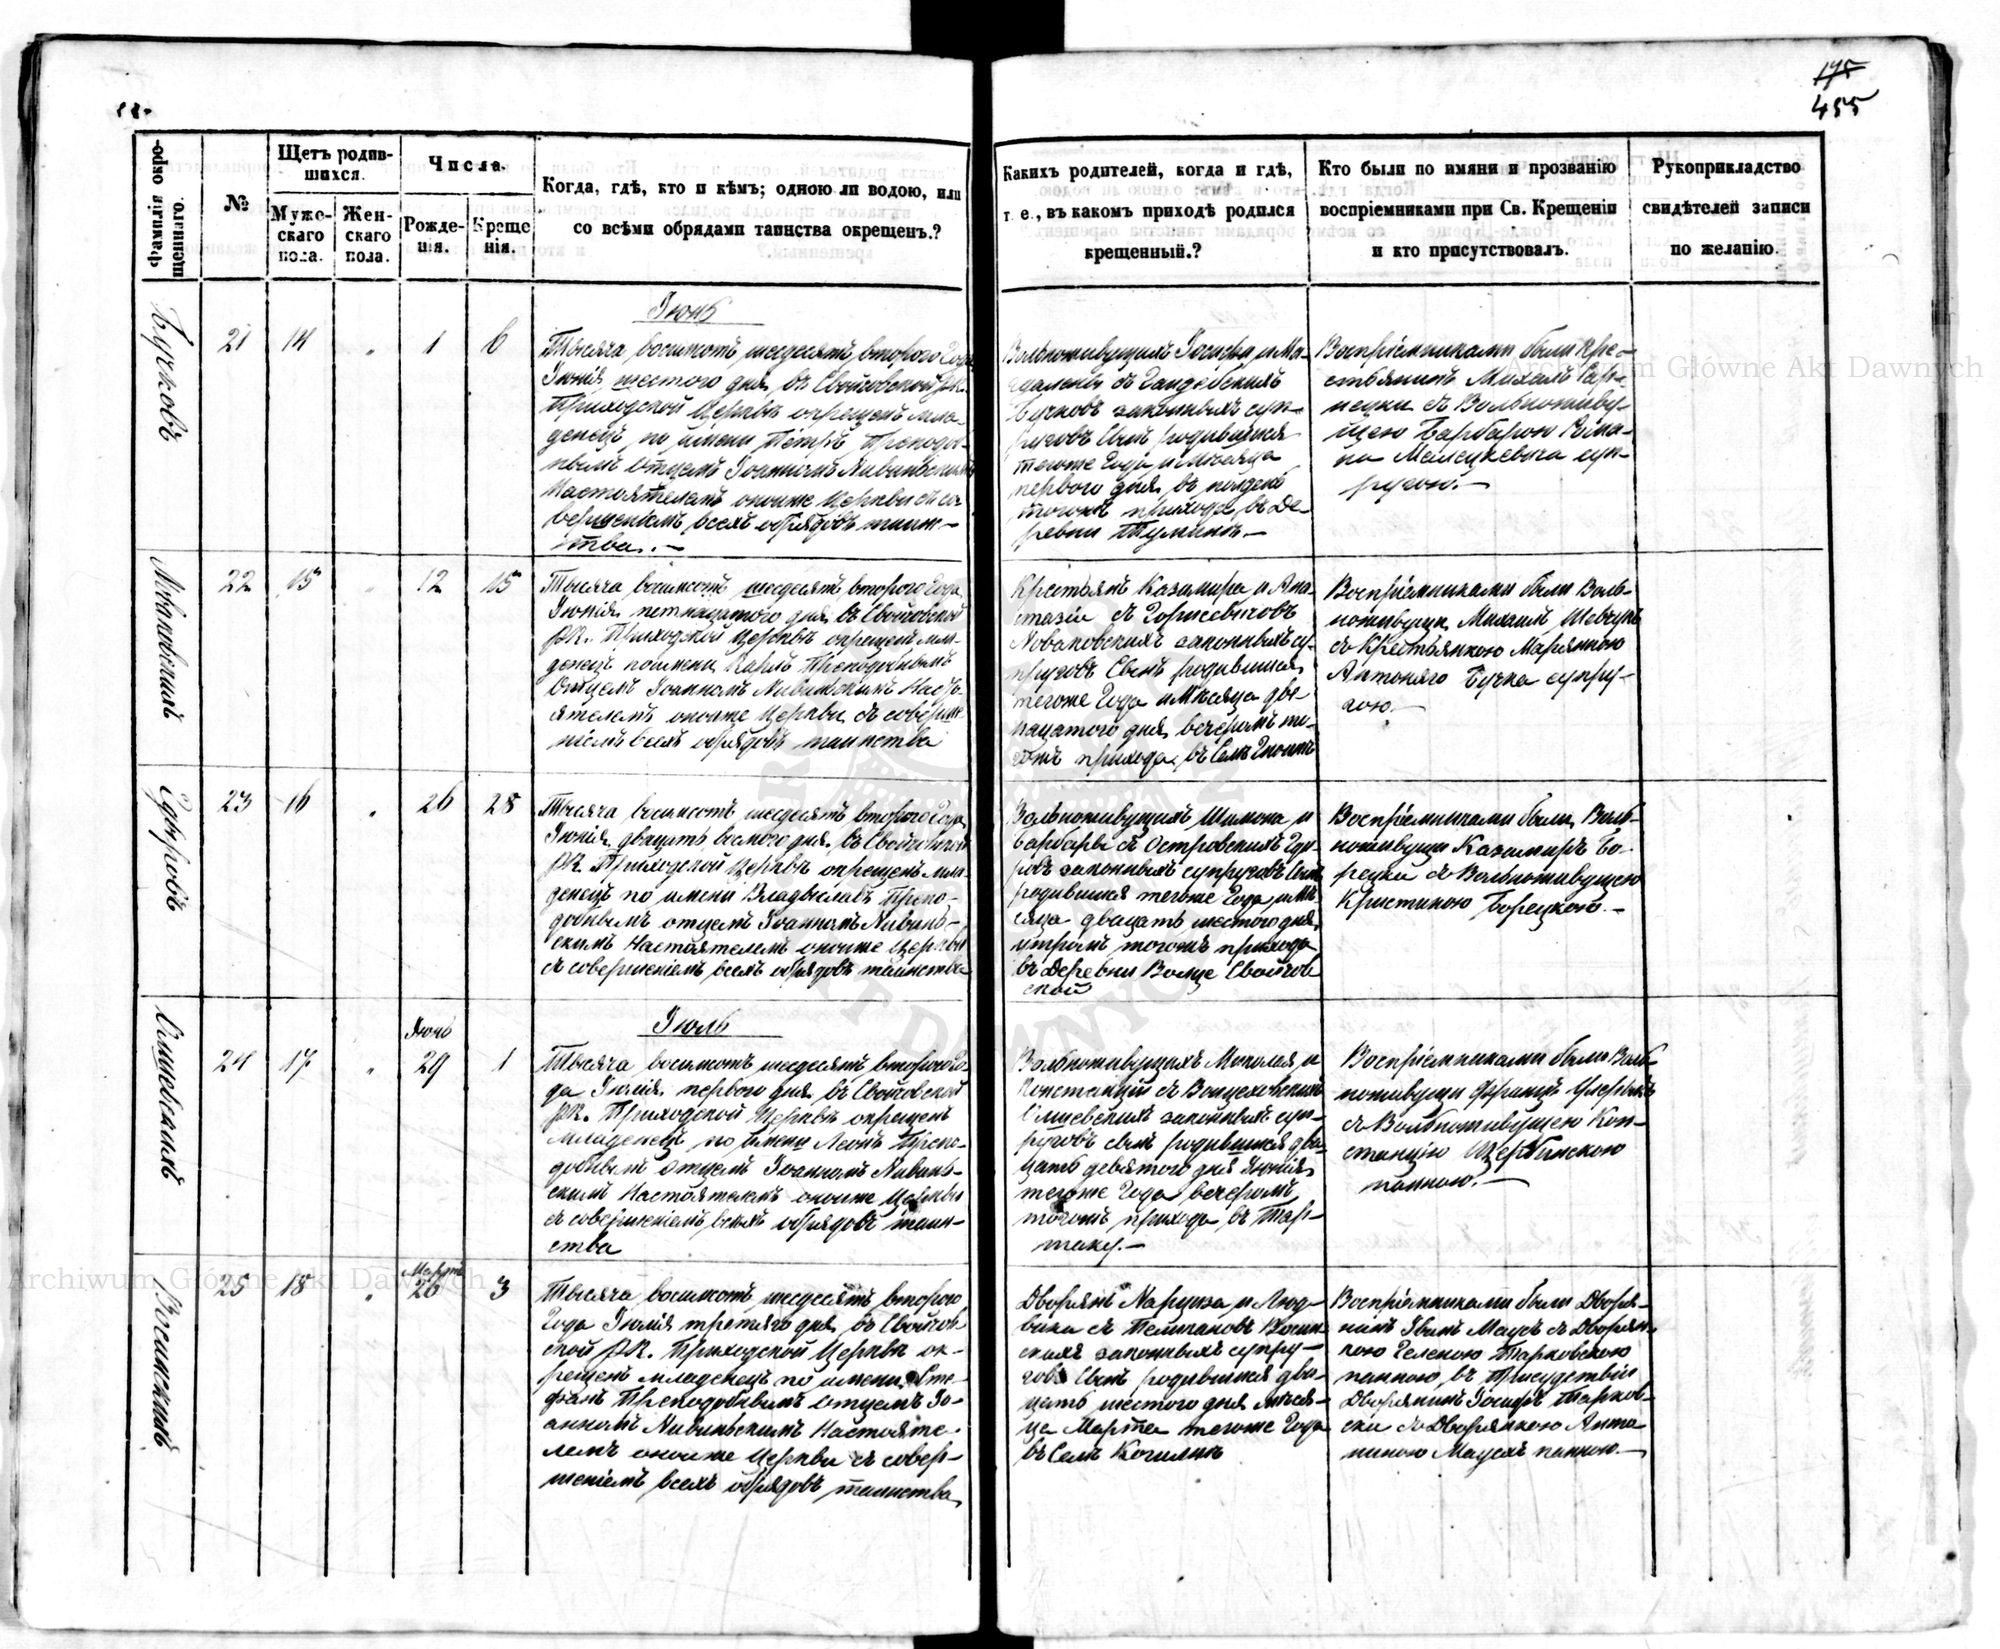 175
455
Фамилія окре-
щеннаго.
№
Щетъ родив-
шихся.
Мужс-
каго
пола.
Жен-
скаго
пола.
Числа.
Рожде-
нія.
Креще
нія.
Когда, гдѣ, кто и кѣмъ; одною ли водою, или
со всѣми обрядами таинства окрещенъ.?
Каких родителей, когда и гдѣ,
т. е., въ какомъ приходѣ родился
крещенный.?
Кто были по имяни и прозванію
воспріемниками при Св. Крещеніи
и кто присутствовалъ.
Рукоприкладство
свидѣтелей записи
по желанію.
Іюнь
Бучковъ
21 14 „ 1 6
Тысяча восимсотъ шесдесятъ второго Года
Іюнія шестого дня, въ Свойчовской Р.К.
Приходской Церквѣ окрещенъ мла-
денецъ по имени Петръ Преподо-
бнымъ Отцемъ Іоанномъ
Настоятелемъ оноиже Церкви съ со-
вершеніемъ всехъ обрядовъ таин-
ства.—
Вольноживущихъ Іосифа и Ма-
гдалены съ
Бучковъ законныхъ суп-
руговъ Сынъ родившійся
тегоже Года и Мѣсяца
первого дня, въ полдень
тогожъ прихода, въ Де-
ревни Тумини.—
Воспріемниками были кре-
стьянинъ Михалъ
съ Вольноживу-
щею Барбарою
суп-
ругою.—
Новаковскихъ
22 15 „ 12 15
Тысяча восимсотъ шесдесятъ второго Года
Іюнія петнацатого дня, въ Свойчовской
Р.К. Приходской Церквѣ окрещенъ мла-
денецъ поимени Карлъ Преподобнымъ
Отцемъ Іоанномъ Насто-
ятелемъ оноиже Церкви, съ соверше-
ніемъ всехъ обрядовъ таинства
Крестьянъ Казимира и Ана-
стазіи съ Горисевичовъ
Новаковскихъ законныхъ су-
пруговъ Сынъ родившійся
тегоже Года и Мѣсяца две-
нацатого дня, вечеромъ то-
гожъ прихода, въ Селѣ
Воспріемниками были Воль-
ноживущи, Михаилъ Шевчукъ
съ Крестьянкою Маріянною
Антоняго Бучка супру-
гою.—
23 16 „ 26 28
Тысяча восимсотъ шесдесятъ второго Года
Іюнія, двацать восмого дня, въ Свойчовской
Р.К. Приходской Церквѣ окрещенъ мла-
денецъ по имени Владыславъ Препо-
добнымъ отцемъ Іоанномъ
Настоятелемъ оноиже Церкви
съ совершеніемъ всехъ обрядовъ таинства
Вольноживущихъ Шимона и
Барбары съ Островскихъ
законныхъ супруговъ Сынъ
родившійся тегоже Года, и Мѣ-
сяца двацать шестого дня,
утромъ тогожъ прихода
въ Деревни Волце Свойчов
ской
Воспріемниками были, Воль-
ноживущи Казимиръ Бо-
рецки съ Вольноживущею
Кристиною Борецкою.—
Іюль
Іюнь
24 17 „ 29 1
Тысяча восимсотъ шесдесятъ второго Го-
да Іюлія, первого дня, въ Свойчовской
Р.К. Приходской Церквѣ окрещенъ
Младенецъ, по имени Леонъ Препо-
добнымъ отцемъ Іоанномъ
Настоятелемъ оноиже Церкви
съ совершеніемъ всехъ обрядовъ таин-
ства
Вольноживущихъ Миколая и
Констанціи съ Войцеховскихъ
законныхъ суп-
руговъ сынъ родившійся два-
цать девятого дня Іюнія,
тегоже Года, вечеромъ,
тогожъ прихода, въ Тар-
таку.—
Воспріемниками были Воль-
ноживущи Францъ
съ Вольноживущею Кон-
станціею Щербинскою
панною.—
Восинскихъ
Мартъ
25 18 „ 26 3
Тысяча восимсотъ шесдесятъ второго
Года Іюлія третяго дня, въ Свойчов
ской Р.К. Приходской Церквѣ ок-
рещенъ младенецъ по имени Сте-
фанъ Преподобнымъ Отцемъ Іо-
анномъ Настояте-
лемъ оноиже Церкви съ совер-
шеніемъ всехъ обрядовъ таинства
Дворянъ Нарциза и Люд-
вики съ
законныхъ супру-
говъ Сынъ родившійся два-
цать шестого дня мѣся-
ца Марта тегоже Года
въ Селѣ
Воспріемниками были Дворя-
нинъ съ Дворян-
кою Геленою Тарковскою
панною, въ Присудствіи
Дворянина Іосифъ Тарков-
ски съ Дворянкою Анто-
ниною панною.—
Archiwum Główne Akt Dawnych
Archiwum Główne Akt Dawnych